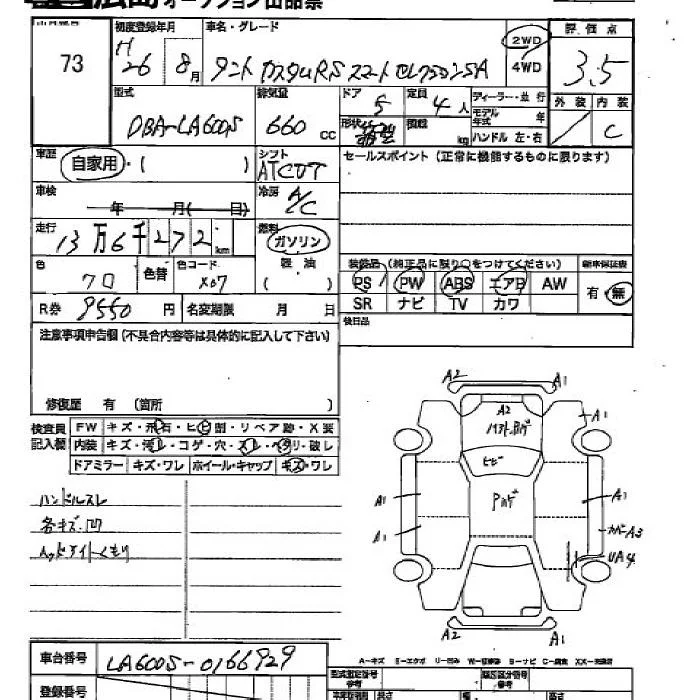 広島 オークション出品票
73
初度登録年月
H26 8月
車名・グレード
タント カスタムRS スマートセレクションSA
2WD
4WD
評価点
3.5
型式
DBA-LA600S
排気量
660 cc
ドア 5
定員 4人
形状
積載 kg
ディーラー・並行
モデル年式 年
ハンドル 左・右
外装 内装
C
車歴
自家用・( )
シフト
AT CVT
セールスポイント (正常に機能するものに限ります)
車検
年 月( 日)
冷房
A/C
走行
13万6千272km
燃料
ガソリン
軽油
( )
色
クロ
色替
色コード
X07
装備品 (純正品に限り○をつけてください)
新車保証書
PS PW ABS エアB AW
SR ナビ TV カワ
有・無
R券 9550 円
名変期限 月 日
後日品
注意事項申告欄 (不具合内容等は具体的に記入して下さい)
修復歴 有 (箇所 )
検査員記入欄
FW キズ・飛石・ヒビ割・リペア跡・X要
内装 キズ・汚レ・コゲ・穴・スレ・ヘタリ・破レ
ドアミラー キズ・ワレ ホイール・キャップ キズ・ワレ
ハンドルスレ
各キズ・凹
ヘッドライトくもり
A2 A1
A2
ハクリ・ボケ
A1
ヒビ
Pボケ
A1 A1
A1 カバーA3
UA4
A2 A1
車台番号
LA600S-0166929
登録番号
A-キズ E-エクボ U-凹み W-補修跡 B-ナビ C-腐食 XX-交換済
型式指定番号
参考
類別区分番号
参考
車両寸法
長さ 幅 高さ